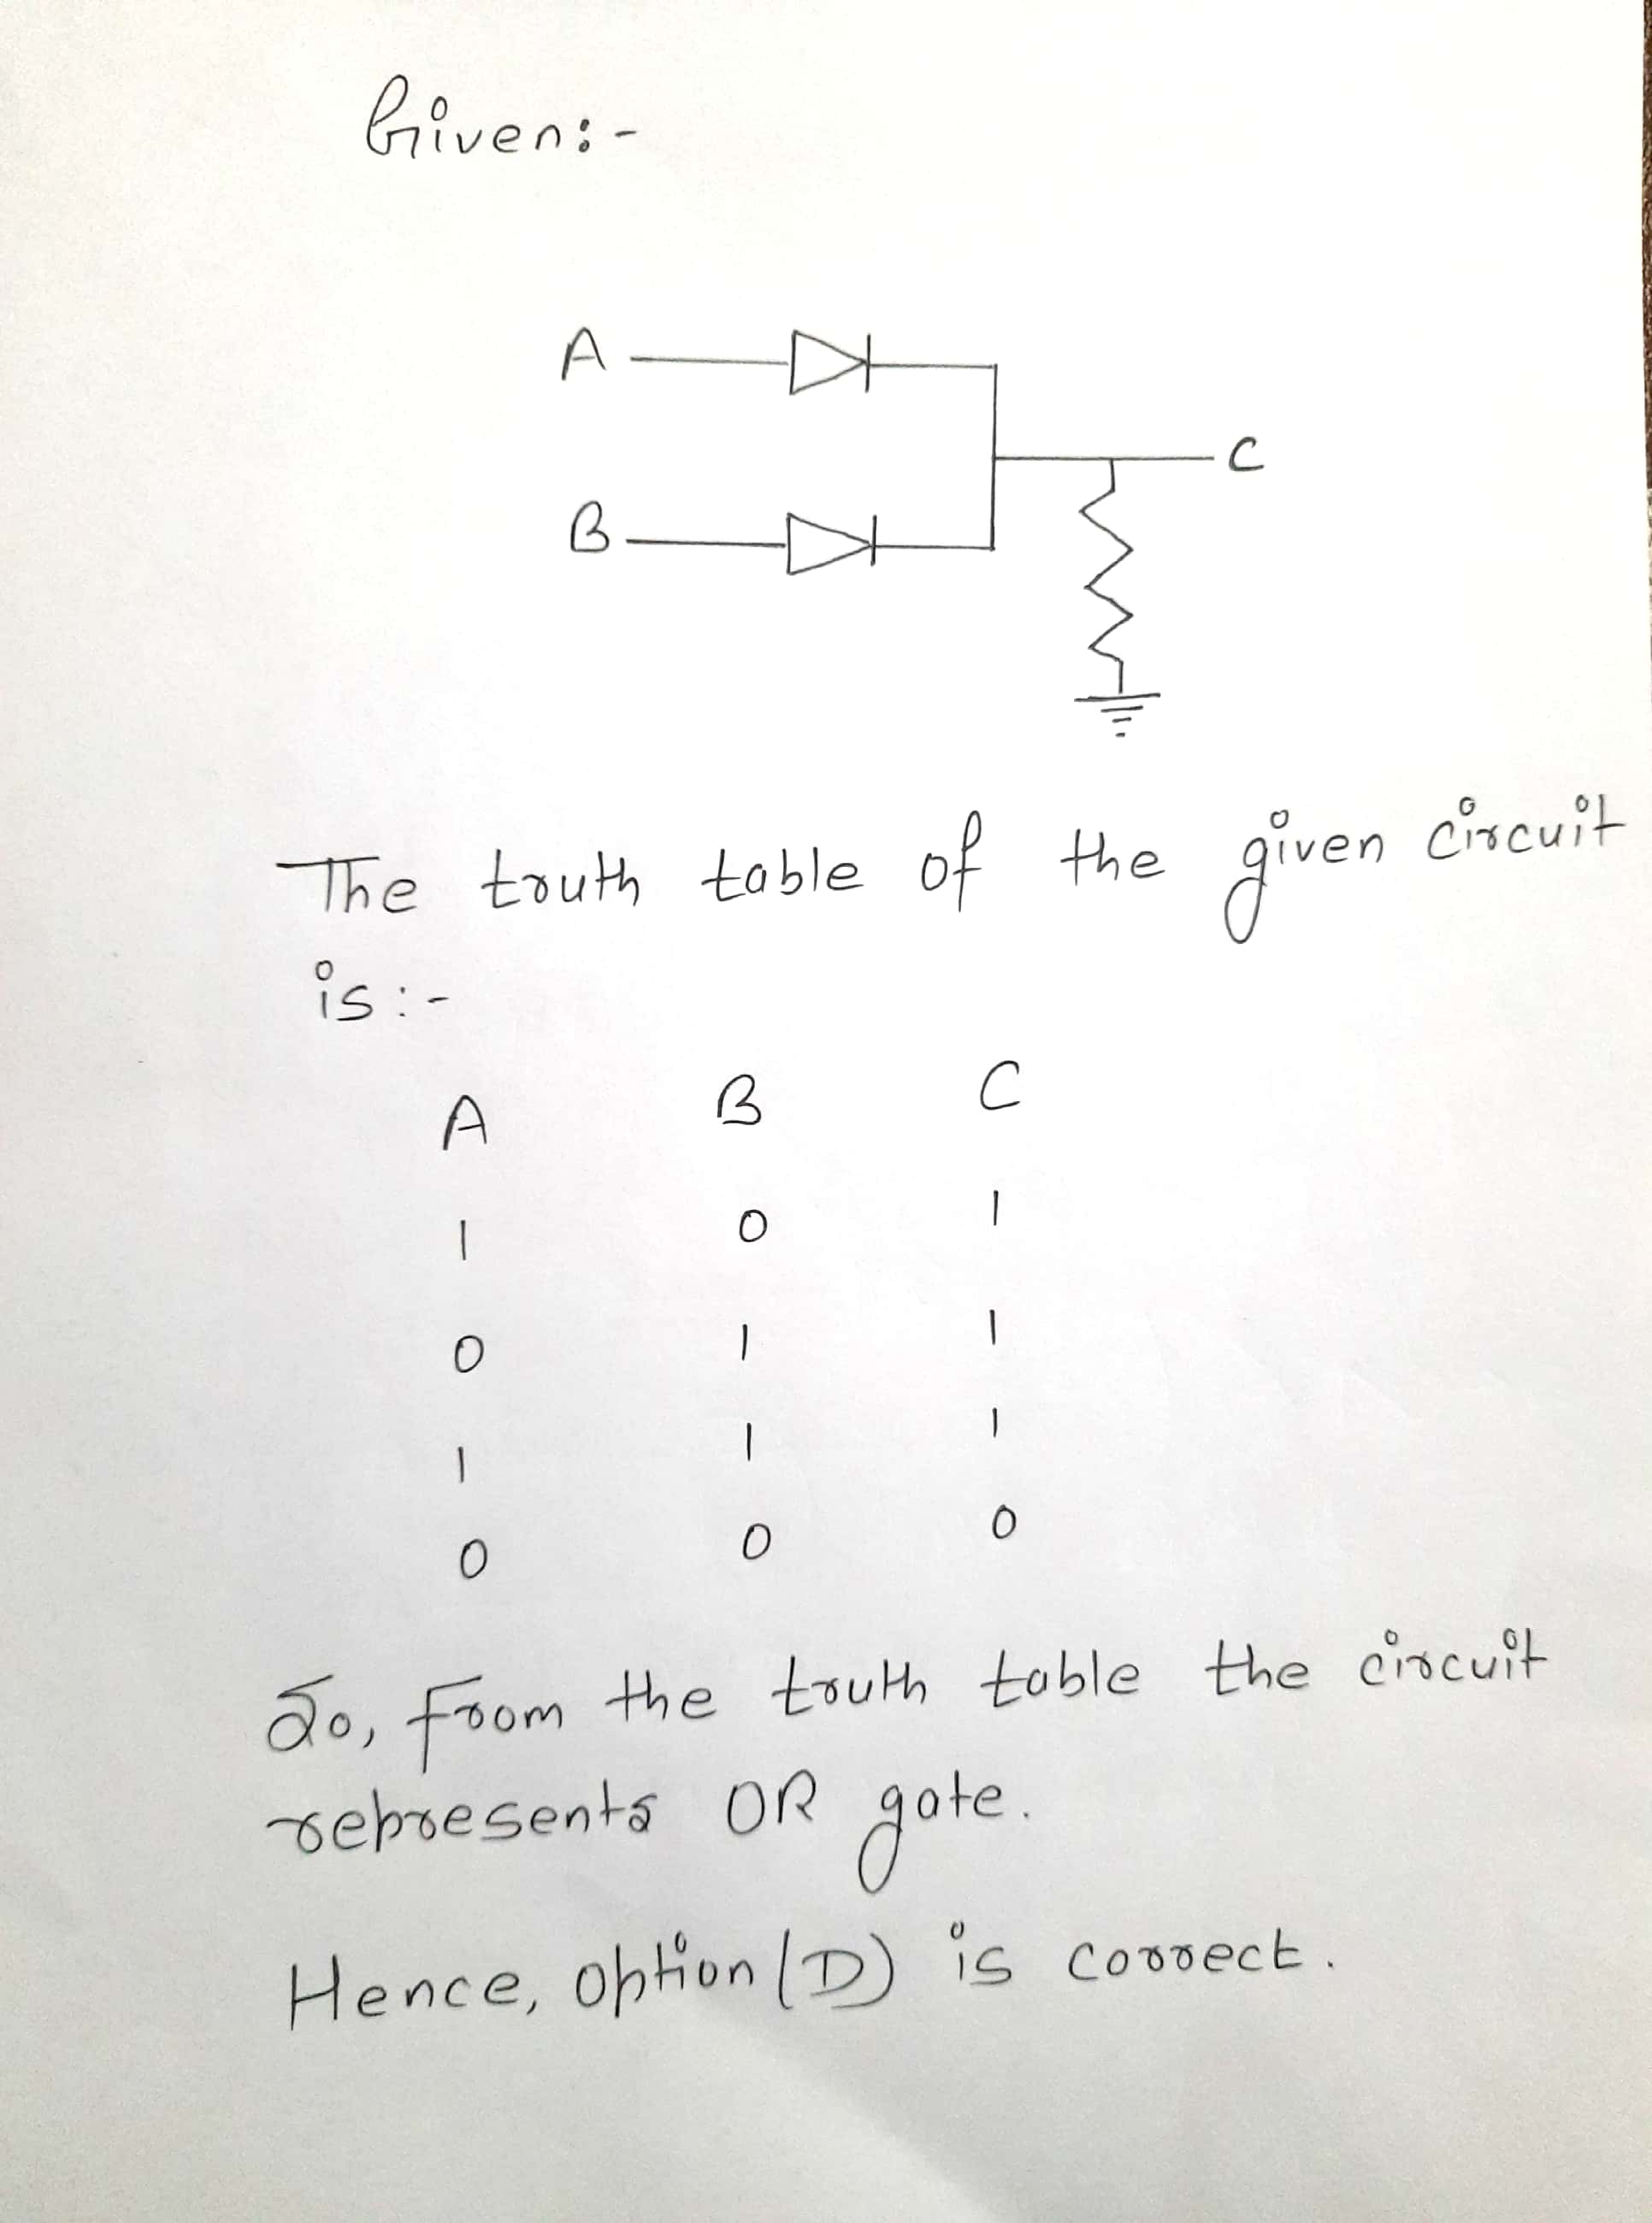 Given:-
A
C
B
The truth table of the given circuit
is:-
A B C
1 0 1
0 1 1
1 1 1
0 0 0
So, From the truth table the circuit
represents OR gate.
Hence, option (D) is correct.